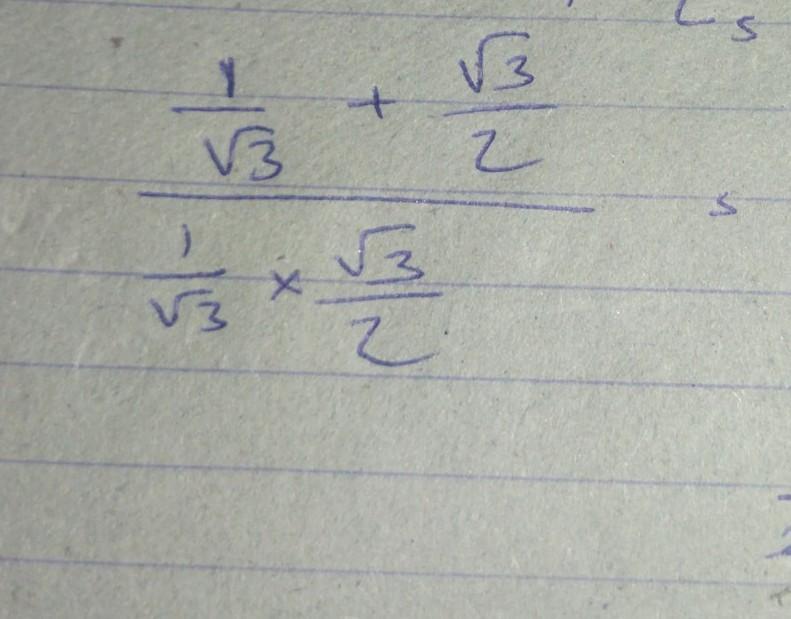 1/√3 + √3/2
1/√3 × √3/2